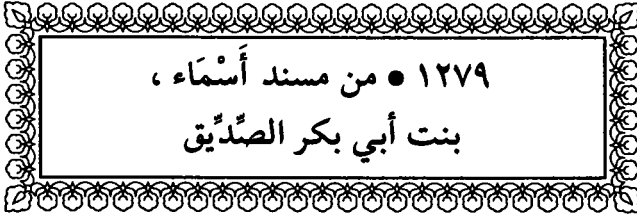 ١٢٧٩ ● من مسند أَسْمَاء ،
بنت أبي بكر الصِّدِّيق